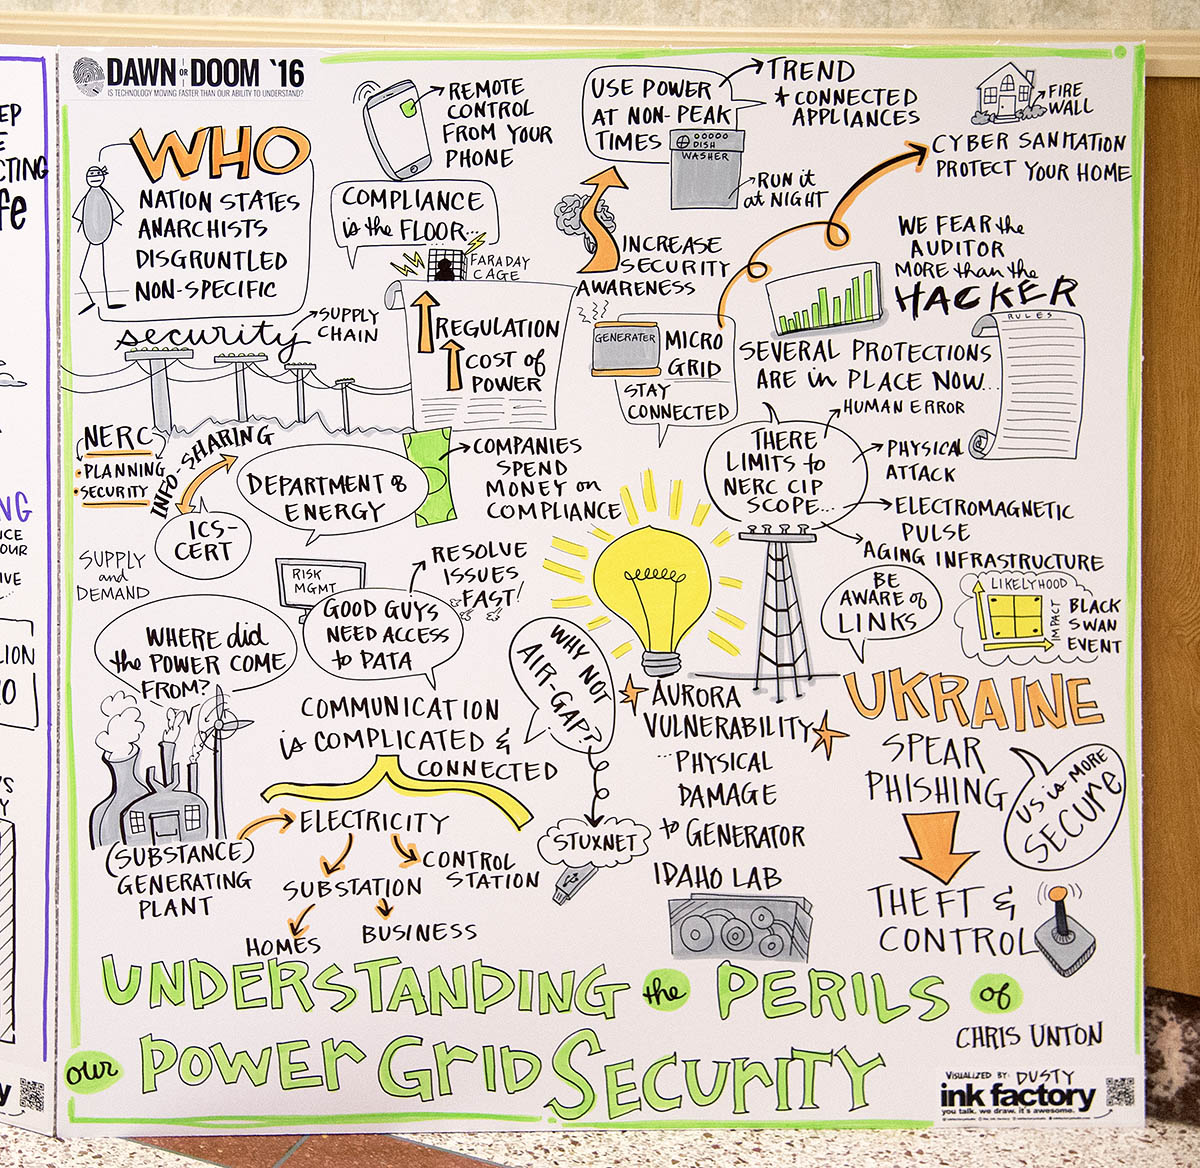 DAWN OR DOOM '16
IS TECHNOLOGY MOVING FASTER THAN OUR ABILITY TO UNDERSTAND?
WHO
NATION STATES
ANARCHISTS
DISGRUNTLED
NON-SPECIFIC
REMOTE
CONTROL
FROM YOUR
PHONE
USE POWER
AT NON-PEAK
TIMES
DISH
WASHER
RUN it
at NIGHT
TREND
* CONNECTED
APPLIANCES
FIRE
WALL
CYBER SANITATION
PROTECT YOUR HOME
COMPLIANCE
is the FLOOR...
FARADAY
CAGE
REGULATION
COST of
POWER
INCREASE
SECURITY
AWARENESS
WE FEAR the
AUDITOR
MORE than the
HACKER
security
SUPPLY
CHAIN
GENERATER
MICRO
GRID
STAY
CONNECTED
SEVERAL PROTECTIONS
ARE in PLACE NOW...
RULES
NERC
• PLANNING
• SECURITY
INFO-SHARING
ICS-
CERT
DEPARTMENT of
ENERGY
COMPANIES
SPEND
MONEY on
COMPLIANCE
THERE
LIMITS to
NERC CIP
SCOPE...
HUMAN ERROR
PHYSICAL
ATTACK
ELECTROMAGNETIC
PULSE
AGING INFRASTRUCTURE
SUPPLY
and
DEMAND
RISK
MGMT
RESOLVE
ISSUES
FAST!
GOOD GUYS
NEED ACCESS
to DATA
WHERE did
the POWER COME
FROM?
WHY NOT
AIR-GAP?
BE
AWARE of
LINKS
LIKELYHOOD
IMPACT
BLACK
SWAN
EVENT
COMMUNICATION
is COMPLICATED &
CONNECTED
ELECTRICITY
SUBSTATION
CONTROL
STATION
HOMES
BUSINESS
(SUBSTANCE)
GENERATING
PLANT
STUXNET
AURORA
VULNERABILITY
...PHYSICAL
DAMAGE
to GENERATOR
IDAHO LAB
UKRAINE
SPEAR
PHISHING
US is MORE
SECURE
THEFT &
CONTROL
UNDERSTANDING the PERILS of
our POWER GRID SECURITY
CHRIS UNTON
VISUALIZED BY: DUSTY
ink factory
you talk. we draw. it's awesome.